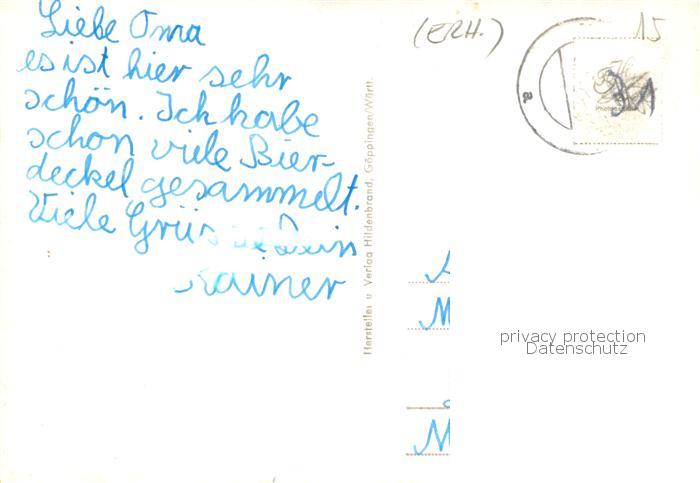 Liebe Oma
es ist hier sehr
schön. Ich habe
schon viele Bier-
deckel gesammelt.
Viele Grüsse Dein
Rainer
Hersteller u. Verlag Hildenbrand, Göppingen/Württ.
(ERH.)
15
a
31
M
M
privacy protection
Datenschutz